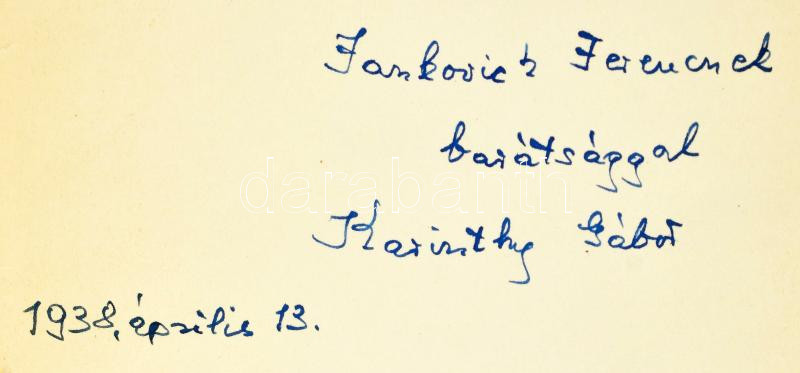 Jankovich Ferencnek
barátsággal
darabanth
Karinthy Gábor
1938, április 13.